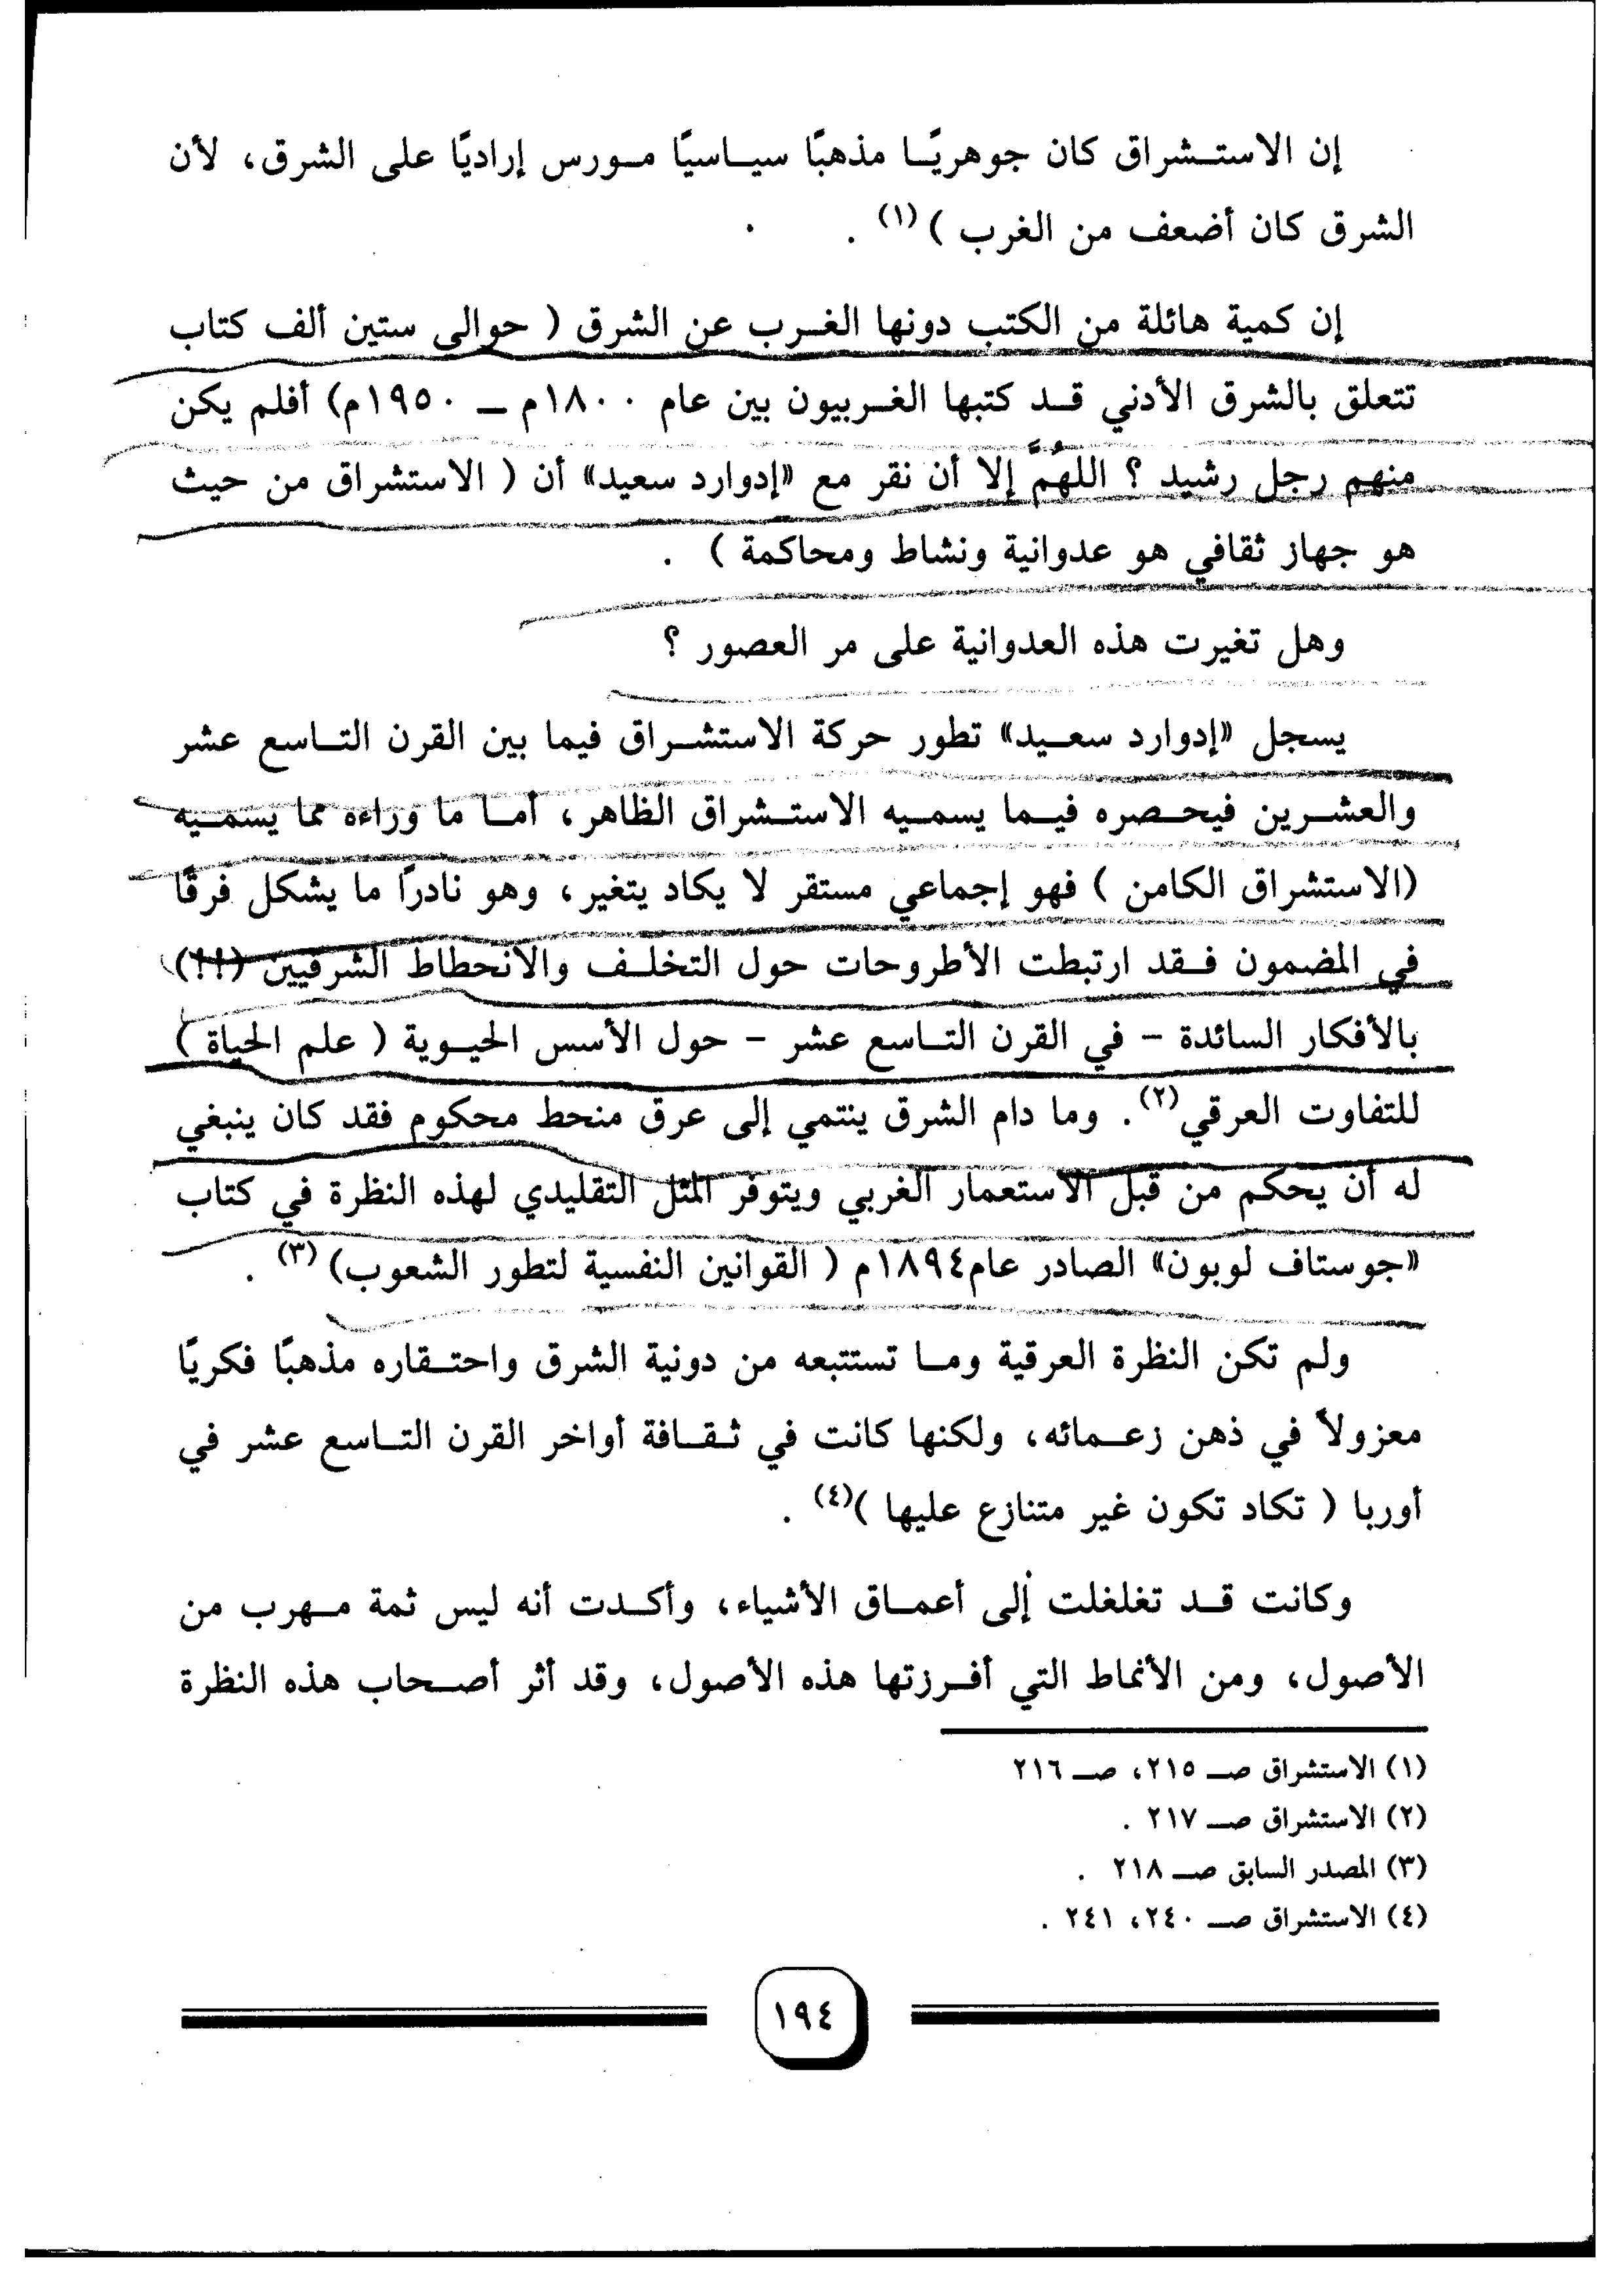 إن الاستشراق كان جوهريًا مذهبًا سياسيًا مورس إراديًا على الشرق، لأن
الشرق كان أضعف من الغرب ) (١) .
إن كمية هائلة من الكتب دونها الغرب عن الشرق ( حوالى ستين ألف كتاب
تتعلق بالشرق الأدني قد كتبها الغربيون بين عام ١٨٠٠م – ١٩٥٠م) أفلم يكن
منهم رجل رشيد ؟ اللهُمَّ إلا أن نقر مع «إدوارد سعيد» أن ( الاستشراق من حيث
هو جهاز ثقافي هو عدوانية ونشاط ومحاكمة ) .
وهل تغيرت هذه العدوانية على مر العصور ؟
يسجل «إدوارد سعيد» تطور حركة الاستشراق فيما بين القرن التاسع عشر
والعشرين فيحصره فيما يسميه الاستشراق الظاهر، أما ما وراءه مما يسميه
(الاستشراق الكامن ) فهو إجماعي مستقر لا يكاد يتغير، وهو نادرًا ما يشكل فرقًا
في المضمون فقد ارتبطت الأطروحات حول التخلف والانحطاط الشرقيين (!!)
بالأفكار السائدة - في القرن التاسع عشر - حول الأسس الحيوية ( علم الحياة )
للتفاوت العرقي(٢). وما دام الشرق ينتمي إلى عرق منحط محكوم فقد كان ينبغي
له أن يحكم من قبل الاستعمار الغربي ويتوفر المثل التقليدي لهذه النظرة في كتاب
«جوستاف لوبون» الصادر عام١٨٩٤م ( القوانين النفسية لتطور الشعوب) (٣) .
ولم تكن النظرة العرقية وما تستتبعه من دونية الشرق واحتقاره مذهبًا فكريًا
معزولاً في ذهن زعمائه، ولكنها كانت في ثقافة أواخر القرن التاسع عشر في
أوربا ( تكاد تكون غير متنازع عليها )(٤) .
وكانت قد تغلغلت إلى أعماق الأشياء، وأكدت أنه ليس ثمة مهرب من
الأصول، ومن الأنماط التي أفرزتها هذه الأصول، وقد أثر أصحاب هذه النظرة
(١) الاستشراق صـ ٢١٥، صـ ٢١٦
(٢) الاستشراق صـ ٢١٧ .
(٣) المصدر السابق صـ ٢١٨ .
(٤) الاستشراق صـ ٢٤٠، ٢٤١ .
١٩٤